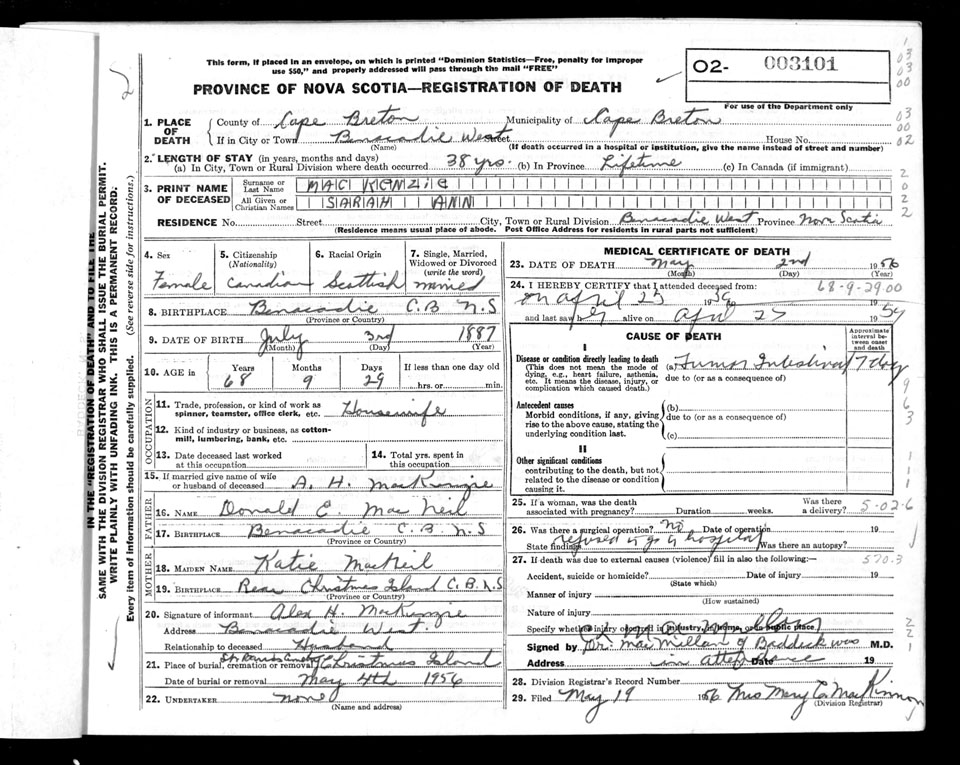 This form, if placed in an envelope, on which is printed "Dominion Statistics—Free, penalty for improper
use $50," and properly addressed will pass through the mail "FREE"
O2- 003101
For use of the Department only
PROVINCE OF NOVA SCOTIA—REGISTRATION OF DEATH
1. PLACE OF DEATH County of Cape Breton Municipality of Cape Breton
If in City or Town Benacadie West Street House No.
(Name) (If death occurred in a hospital or institution, give the name instead of street and number)
2. LENGTH OF STAY (in years, months and days)
(a) In City, Town or Rural Division where death occurred 38 yrs. (b) In Province Lifetime (c) In Canada (if immigrant)
3. PRINT NAME OF DECEASED Surname or Last Name MAC KENZIE
All Given or Christian Names SARAH ANN
RESIDENCE No. Street City, Town or Rural Division Benacadie West Province Nova Scotia
(Residence means usual place of abode. Post Office Address for residents in rural parts not sufficient)
4. Sex Female
5. Citizenship (Nationality) Canadian
6. Racial Origin Scottish
7. Single, Married, Widowed or Divorced (write the word) married
8. BIRTHPLACE Benacadie C.B N.S
(Province or Country)
9. DATE OF BIRTH July 3rd 1887
(Month) (Day) (Year)
10. AGE in Years 68 Months 9 Days 29 If less than one day old
hrs. or min.
OCCUPATION
11. Trade, profession or kind of work as spinner, teamster, office clerk, etc. Housewife
12. Kind of industry or business, as cotton-mill, lumbering, bank, etc.
13. Date deceased last worked at this occupation
14. Total yrs. spent in this occupation
15. If married give name of wife or husband of deceased A. H. MacKenzie
FATHER
16. NAME Donald E. Mac Neil
17. BIRTHPLACE Benacadie C.B N.S
(Province or Country)
MOTHER
18. MAIDEN NAME Katie MacNeil
19. BIRTHPLACE Rear Christmas Island C.B. N.S
(Province or Country)
20. Signature of informant Alex H. MacKenzie
Address Benacadie West.
Relationship to deceased Husband
21. Place of burial, cremation or removal Christmas Island
Date of burial or removal May 4th 1956
22. UNDERTAKER none
(Name and address)
MEDICAL CERTIFICATE OF DEATH
23. DATE OF DEATH May 2nd 1956
(Month) (Day) (Year)
24. I HEREBY CERTIFY that I attended deceased from: 68-9-29.00
on april 25 1956 19
and last saw her alive on April 25 1956
CAUSE OF DEATH
Approximate interval between onset and death
I
Disease or condition directly leading to death
(This does not mean the mode of dying, e.g., heart failure, asthenia, etc. It means the disease, injury, or complication which caused death.)
(a) Tumor Intestinal 7 day
due to (or as a consequence of)
Antecedent causes
Morbid conditions, if any, giving rise to the above cause, stating the underlying condition last.
(b)
due to (or as a consequence of)
(c)
II
Other significant conditions
contributing to the death, but not related to the disease or condition causing it.
25. If a woman, was the death associated with pregnancy? Duration weeks. Was there a delivery? 5-02-6
26. Was there a surgical operation? no Date of operation 19
State findings refused to go to hospital Was there an autopsy?
27. If death was due to external causes (violence) fill in also the following:— 570.3
Accident, suicide or homicide? Date of injury 19
(State which)
Manner of injury
(How sustained)
Nature of injury
Specify whether injury occurred in industry, in home, or in public place
Signed by Dr. MacMillan of Baddeck was M.D.
Address in attendance Date 19
28. Division Registrar's Record Number
29. Filed May 19 1956 Mrs Mary C. MacKinnon
(Division Registrar)
IN THE "REGISTRATION OF DEATH" AND TO FILE THE
SAME WITH THE DIVISION REGISTRAR WHO SHALL ISSUE THE BURIAL PERMIT.
WRITE PLAINLY WITH UNFADING INK. THIS IS A PERMANENT RECORD.
Every item of information should be carefully supplied. (See reverse side for instructions.)